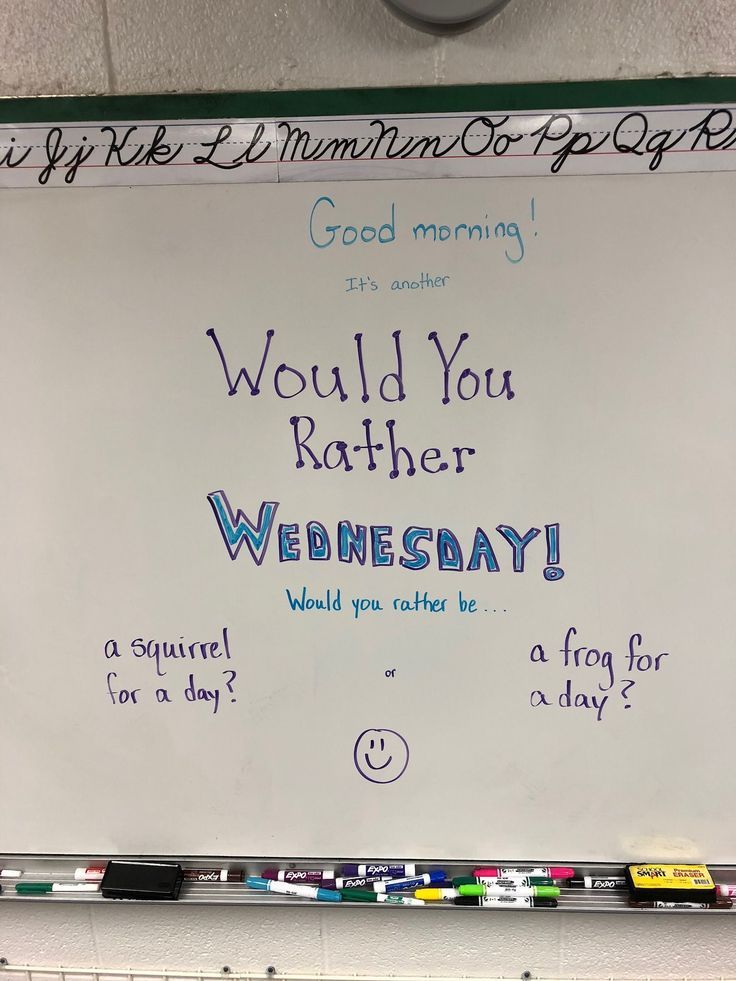 i Jj Kk Ll Mm Nn Oo Pp Qq R
Good morning!
It's another
Would You
Rather
WEDNESDAY!
Would you rather be...
a squirrel
for a day?
or
a frog for
a day?
EXPO EXPO EXPO EXPO EXPO EXPO
SCHOOL SMART Premium ERASER